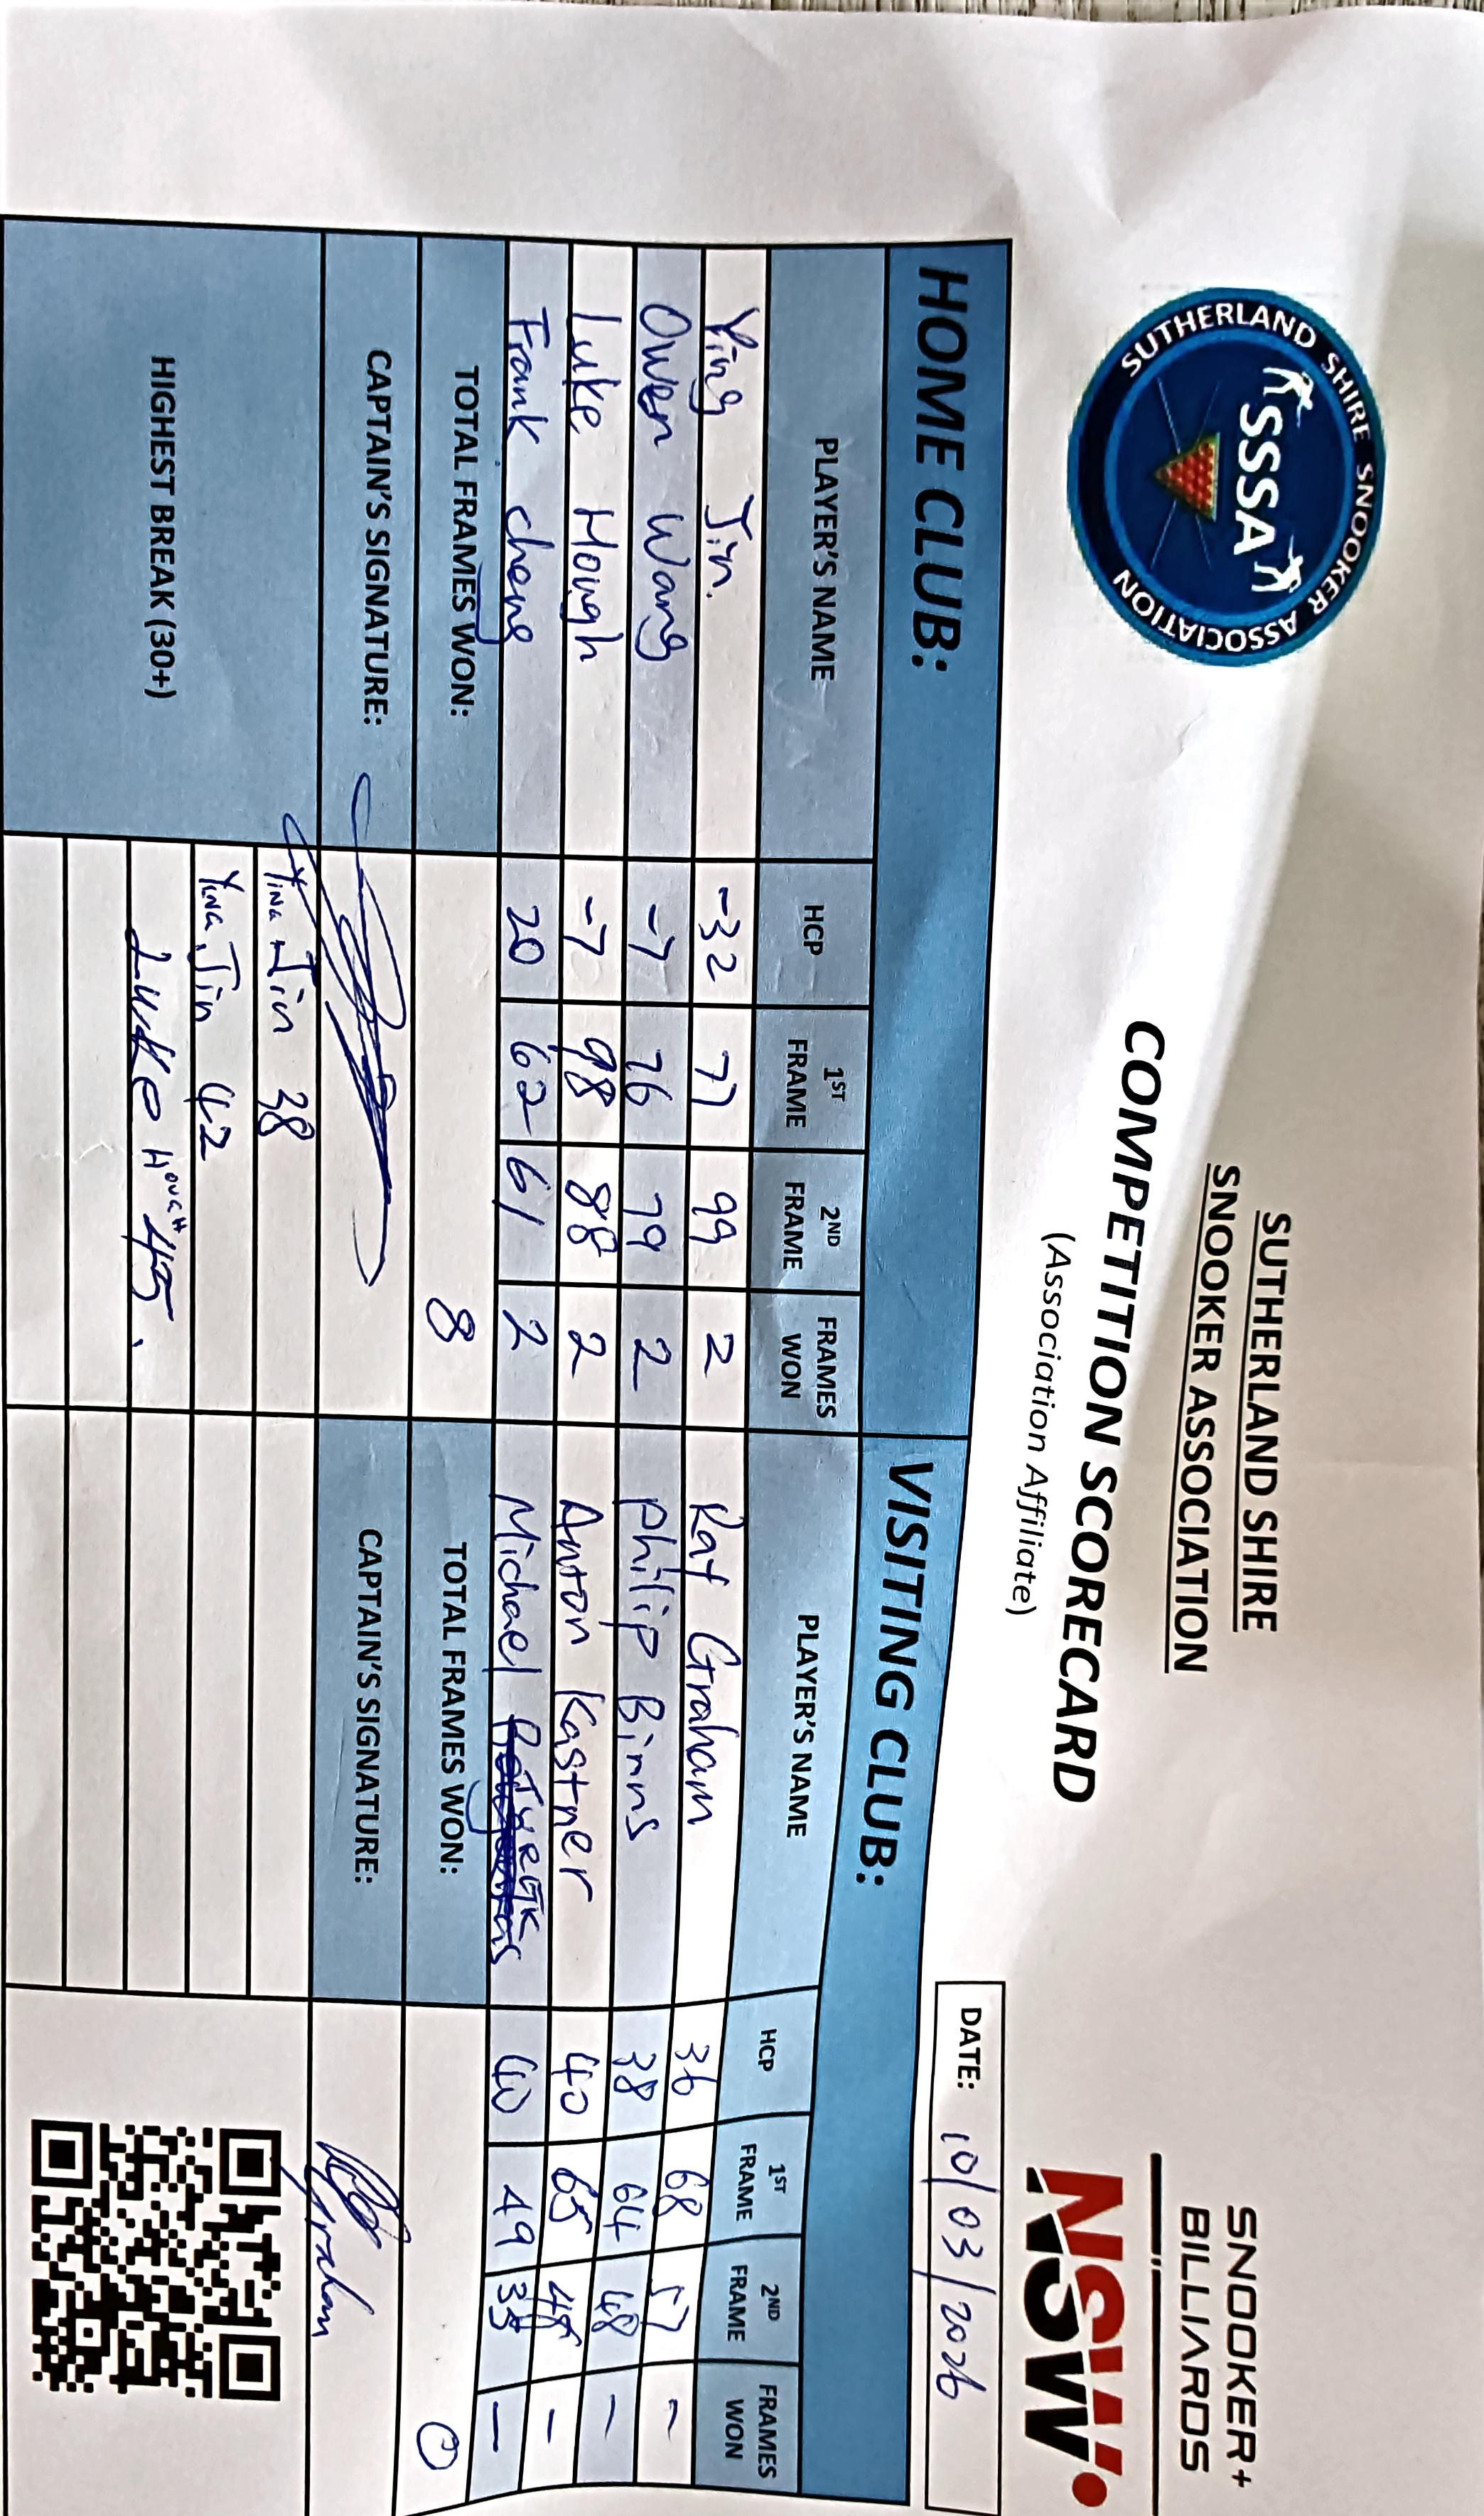 SUTHERLAND SHIRE SNOOKER ASSOCIATION
SSSA
SUTHERLAND SHIRE
SNOOKER ASSOCIATION
COMPETITION SCORECARD
(Association Affiliate)
SNOOKER+
BILLIARDS
NSW
DATE: 10/03/2026
HOME CLUB: VISITING CLUB:
PLAYER'S NAME HCP 1ST FRAME 2ND FRAME FRAMES WON PLAYER'S NAME HCP 1ST FRAME 2ND FRAME FRAMES WON
Ying Jin. -32 77 99 2 Kay Graham 36 68 57 -
Owen Wang -7 76 79 2 Philip Binns 38 64 48 -
Luke Hough -7 98 88 2 Anton Kastner 40 65 48 -
Frank cheng 20 62 61 2 Michael 40 49 -
TOTAL FRAMES WON: 8 TOTAL FRAMES WON: 0
CAPTAIN'S SIGNATURE: CAPTAIN'S SIGNATURE: Graham
HIGHEST BREAK (30+)
Ying Jin 38
YING Jin 42
Luke HOUGH 45.